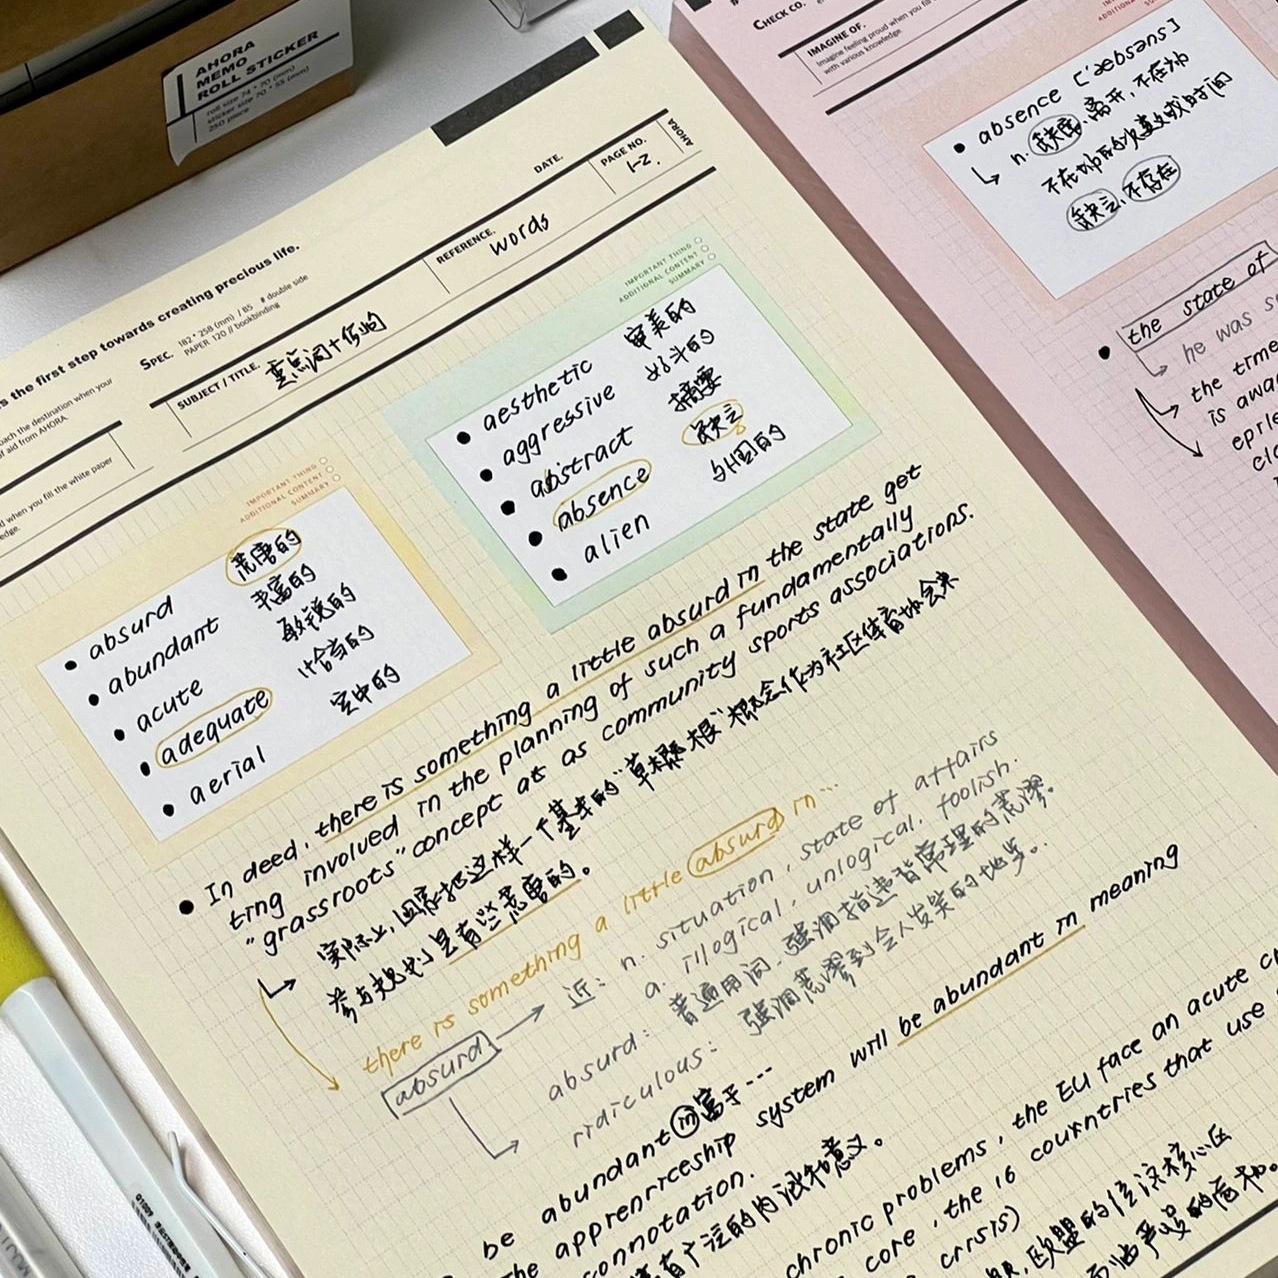 AHORA
MEMO
ROLL STICKER
roll size 74 * 70 (mm)
sticker size 70 * 55 (mm)
250 piece
's the first step towards creating precious life.
SPEC.
182 * 258 (mm) / 85 # double side
PAPER 120 // bookbinding
DATE.
PAGE NO.
1-2.
AHORA
REFERENCE.
words
SUBJECT / TITLE.
重点词+例句
oach the destination when your
of aid from AHORA.
d when you fill the white paper
edge.
IMPORTANT THING
ADDITIONAL CONTENT
SUMMARY
• absurd 荒唐的
• abundant 丰富的
• acute 敏锐的
• adequate 恰当的
• aerial 空中的
IMPORTANT THING
ADDITIONAL CONTENT
SUMMARY
• aesthetic 审美的
• aggressive 好斗的
• abstract 摘要
• absence 缺乏
• alien 外国的
• In deed, there is something a little absurd in the state get
ting involved in the planning of such a fundamentally
"grassroots" concept as as community sports associations.
实际上,国家把这样一个基本的"草根"概念作为社区体育协会来
参与规划是有些荒唐的。
there is something a little absurd in ···
absurd → 近: n. situation, state of affairs
a. illogical, unlogical, foolish.
absurd: 普遍用词,强调指违背常理的荒谬。
ridiculous: 强调荒谬到令人发笑的地步。
be abundant in 富于···
The apprenriceship system will be abundant in meaning
connotation.
有广泛的内涵和意义。
chronic problems, the EU face an acute cr
core, the 16 countries that use
crisis)
欧盟的经济核心区
CHECK CO.
IMAGINE OF.
Imagine feeling proud when you fill
with various knowledge.
ADDITIONAL
SUM
• absence ['æbsəns]
n. 缺席,离开,不在处
不在处的次数或时间
缺乏,不存在
• the state of
he was s
the time
is awa
MUJI